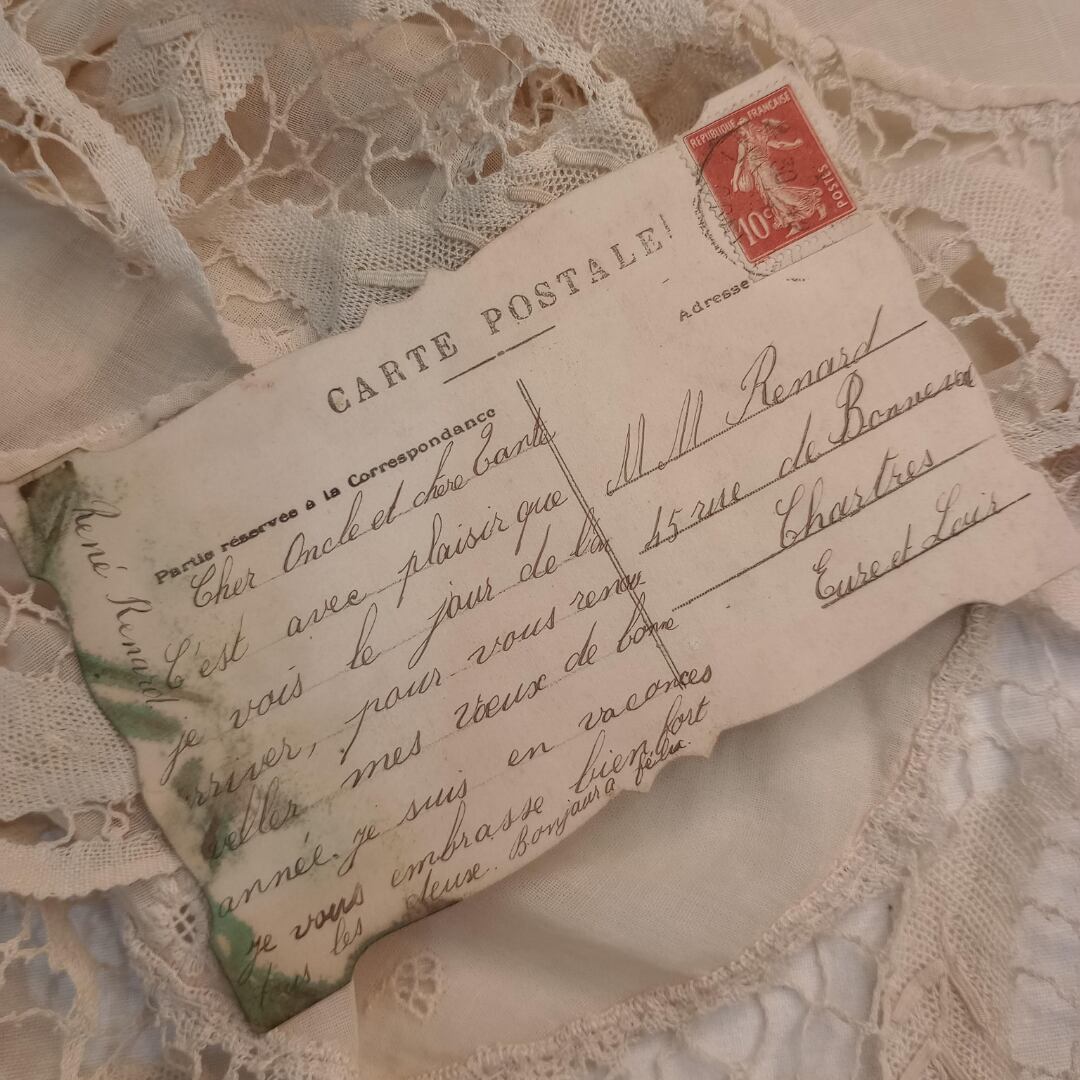 CARTE POSTALE
REPUBLIQUE FRANÇAISE
POSTES
10c
Partie réservée à la Correspondance
Adresse
Cher Oncle et chère Tante
C'est avec plaisir que
je vois le jour de l'an
arriver, pour vous renou
veller mes vœux de bonne
année. je suis en vacances
je vous embrasse bien fort
tous les deux. Bonjour à Félix.
René Renard
M M Renard
45 rue de Bonneval
Chartres
Eure et Loir